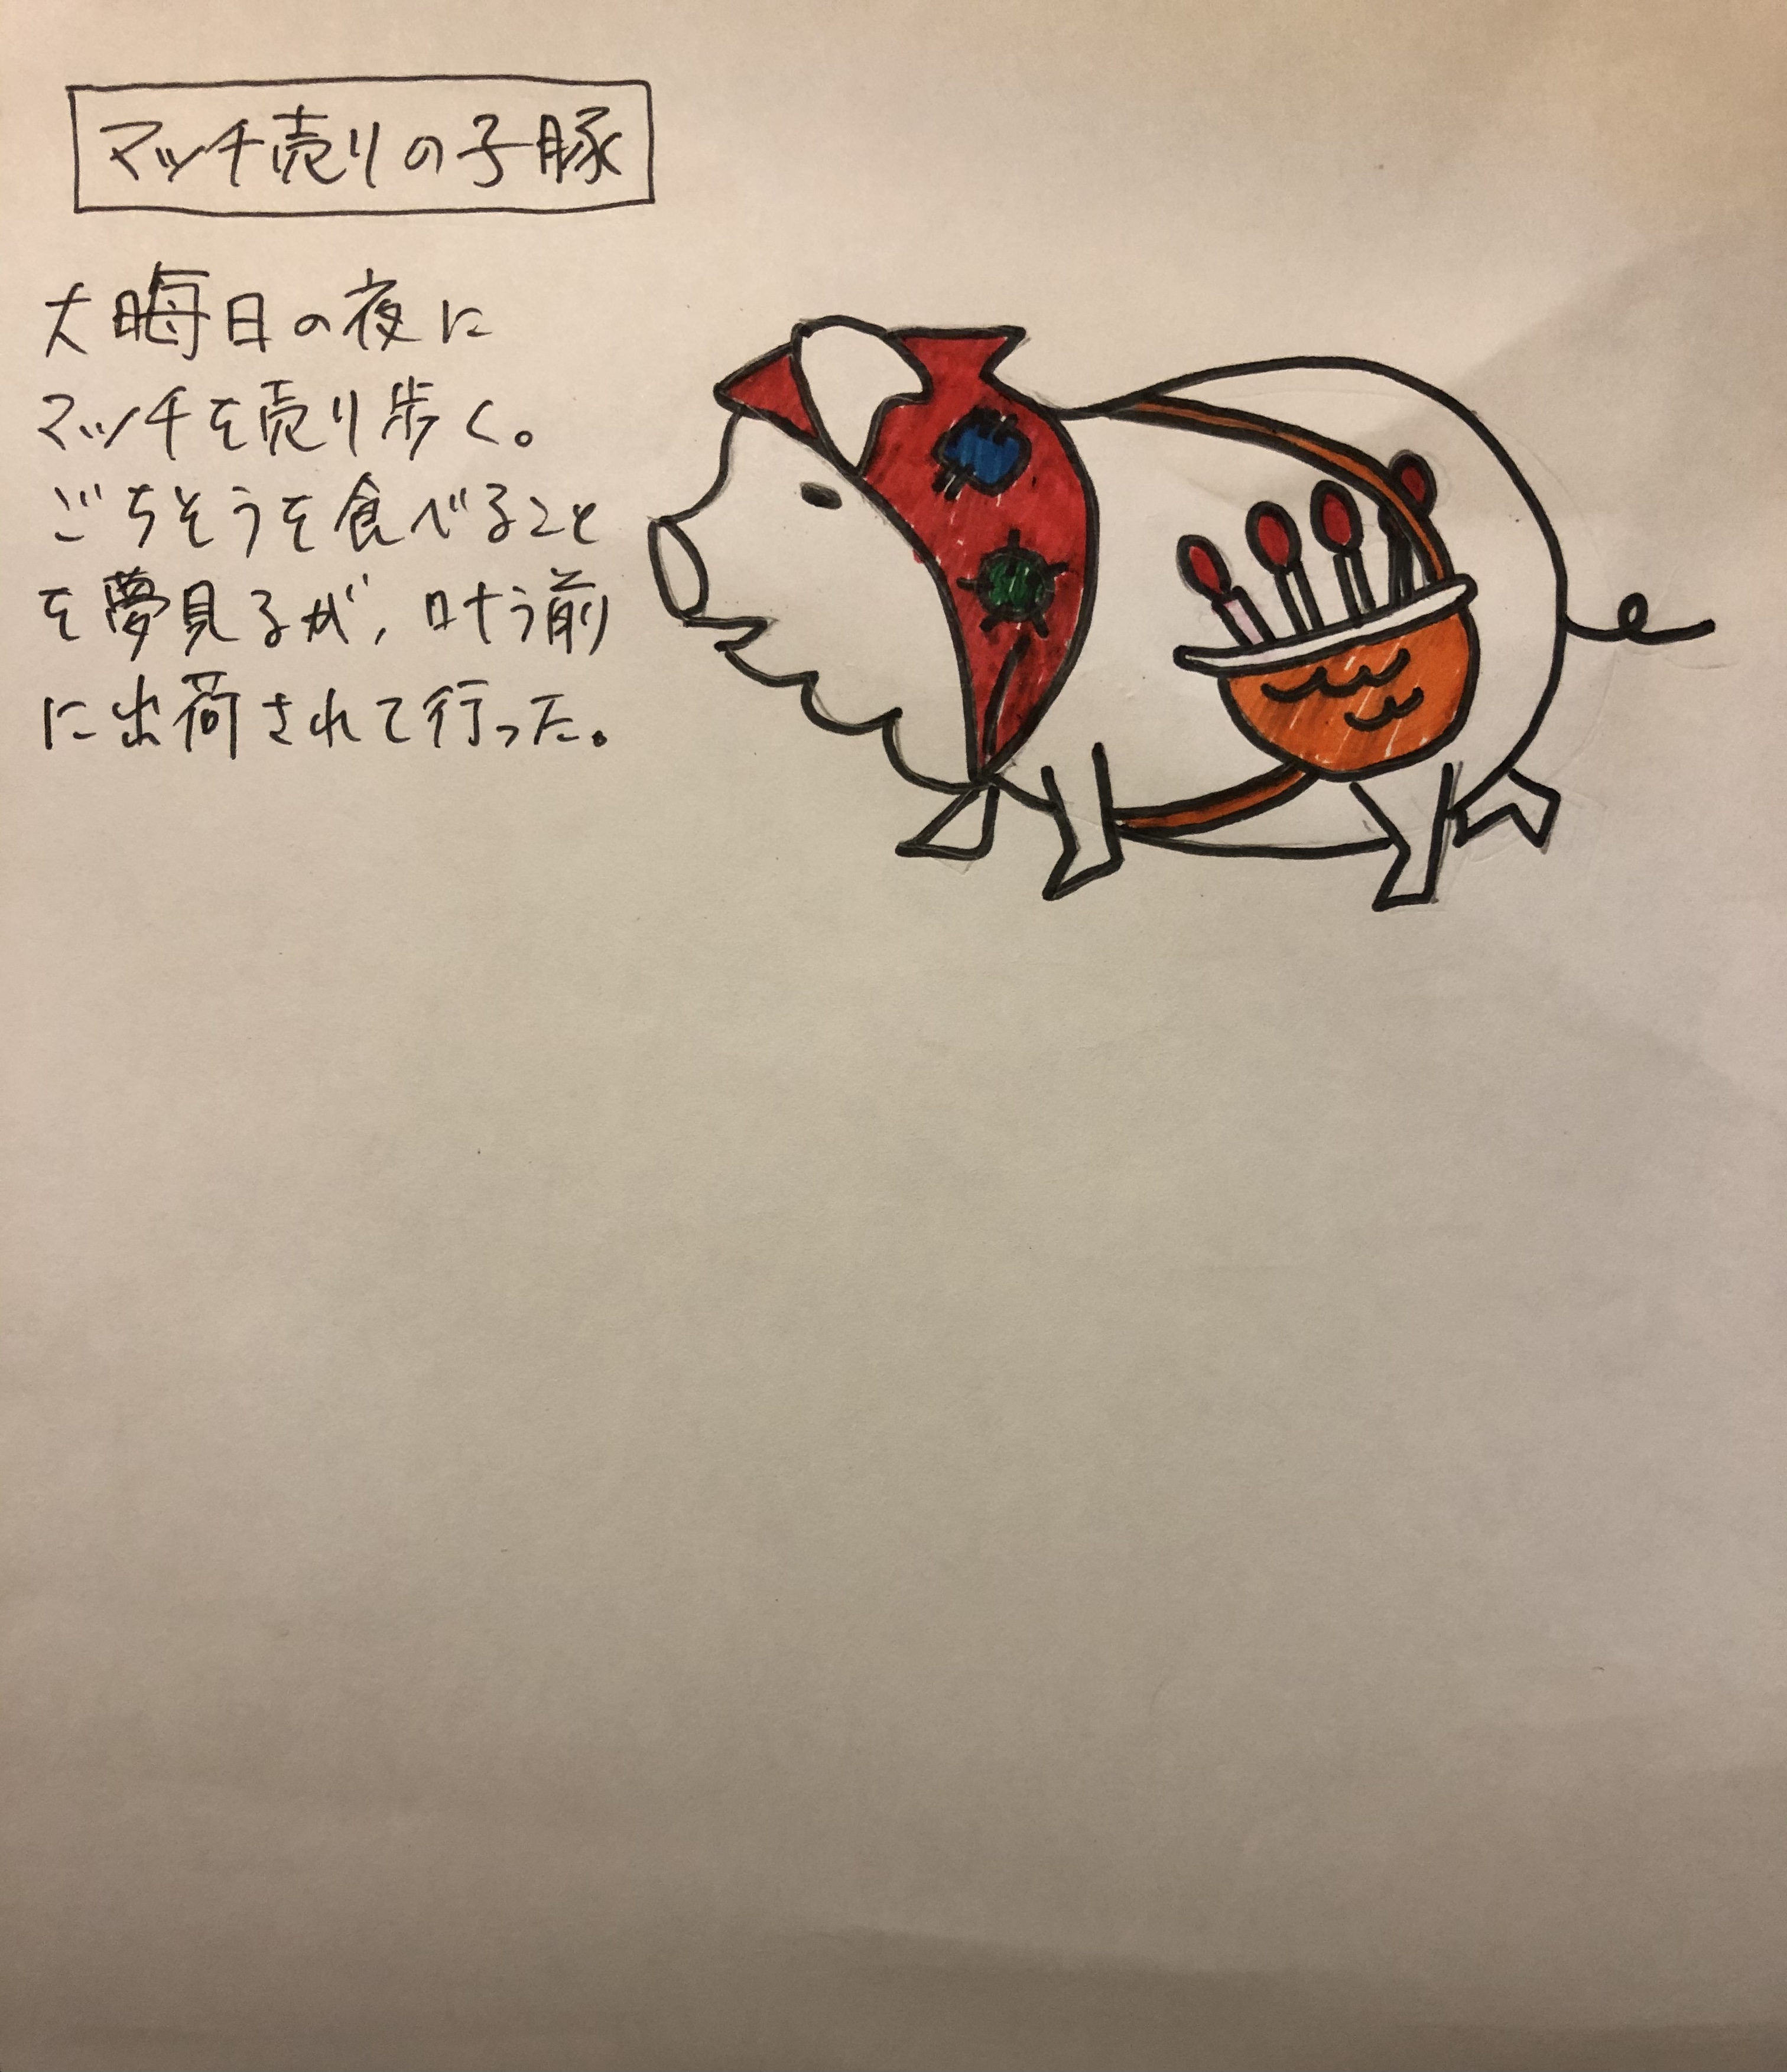 マッチ売りの子豚
大晦日の夜に
マッチを売り歩く。
ごちそうを食べること
を夢見るが、叶う前
に出荷されて行った。